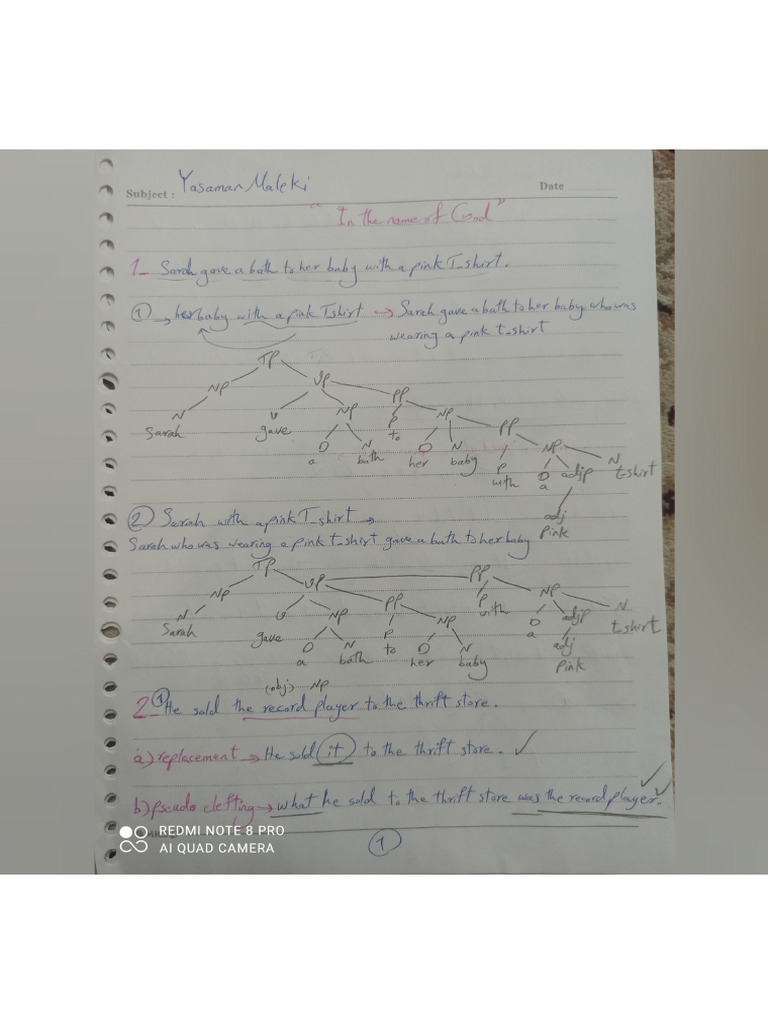 Subject : Yasaman Maleki Date
"In the name of God"
1- Sarah gave a bath to her baby with a pink T_shirt.
① → her baby with a pink Tshirt → Sarah gave a bath to her baby who was
wearing a pink t_shirt
TP
NP VP PP
N V NP P NP PP
Sarah gave D N to D N P NP N
a bath her baby with D adjp t-shirt
a
adj
pink
② Sarah with a pink T_shirt →
Sarah who was wearing a pink t_shirt gave a bath to her baby
TP VP PP
NP PP P NP N
N V NP P NP with D adjp t_shirt
Sarah gave D N to D N a adj
a bath her baby pink
(obj) NP
2_ ① He sold the record player to the thrift store.
a) replacement → He sold (it) to the thrift store. ✓
b) pseudo clefting → what he sold to the thrift store was the record player. ✓✓
REDMI NOTE 8 PRO
AI QUAD CAMERA
①